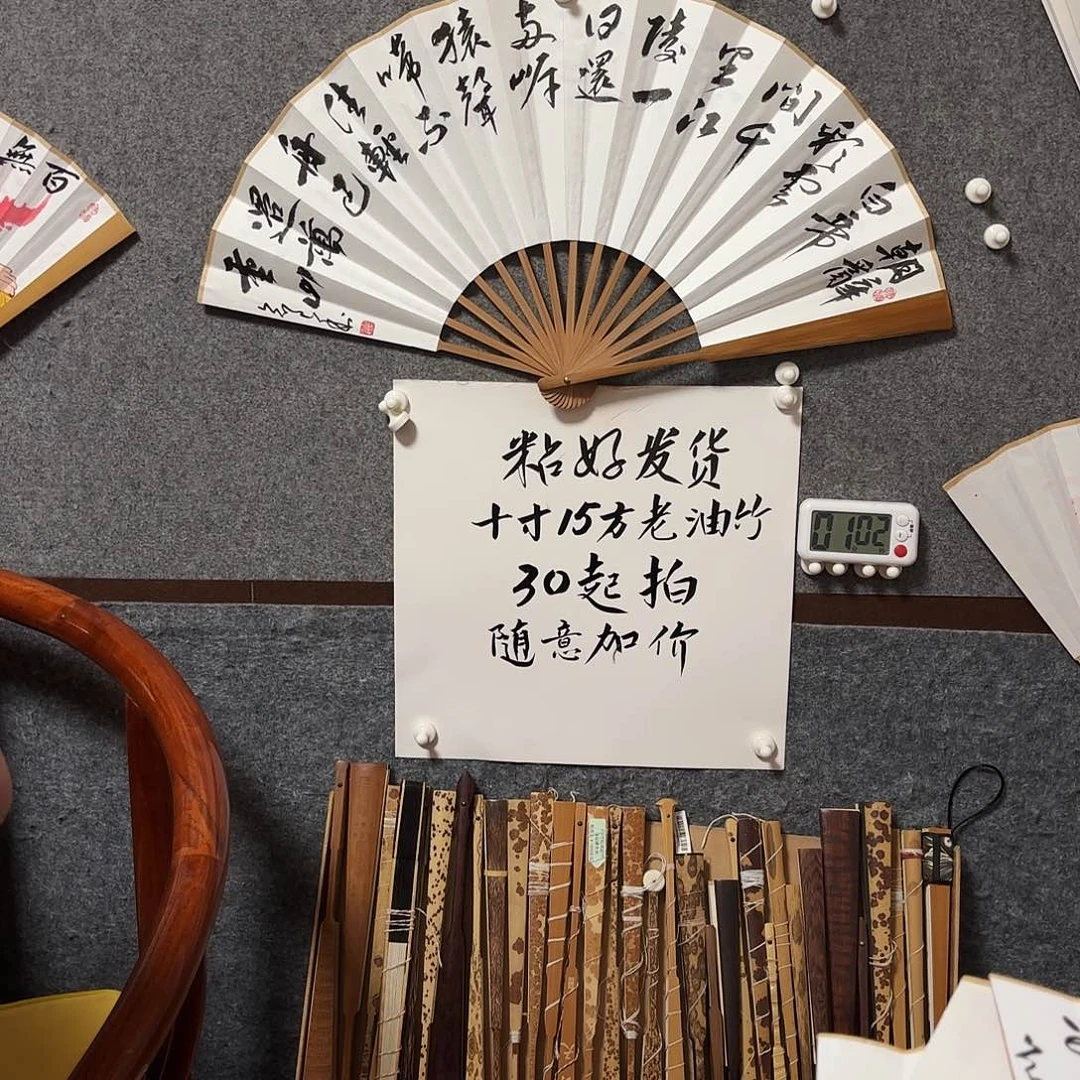 朝辭
白帝
彩雲
间千
里江
陵一
日還
两岸
猿聲
啼不
住輕
舟已
過萬
重山
百
無
粘好发货
十寸15方老油竹
30起拍
随意加价
01:02